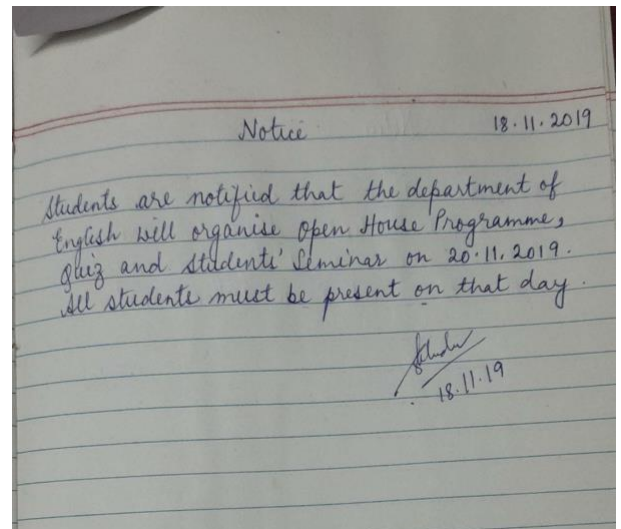 Notice 18.11.2019
Students are notified that the department of
English will organise Open House Programme,
Quiz and Students' Seminar on 20.11.2019.
All students must be present on that day.
18.11.19